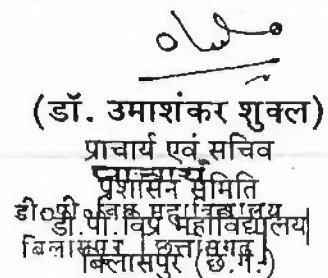 (डॉ. उमाशंकर शुक्ल)
प्राचार्य एवं सचिव
प्राचार्य
प्रशासन समिति
डी०पी०विप्र महाविद्यालय
डी.पी.विप्र महाविद्यालय
बिलासपुर (छत्तीसगढ़)
बिलासपुर (छ.ग.)